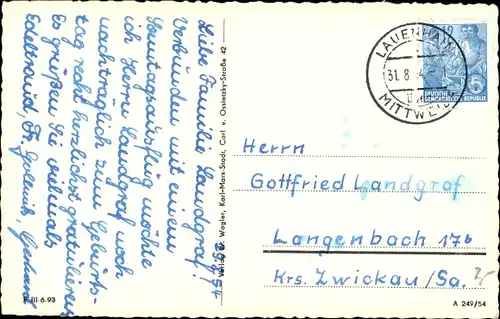 Liebe Familie Landgraf!
Verbunden mit einem
Sonntagsausflug möchte
ich Herrn Landgraf noch
nachträglich zum Geburts-
tag recht herzlichst gratulieren
Es grüßen Sie vielmals
Edeltraud, Fr.
54
Verlag W. Wagler, Karl-Marx-Stadt, Carl v. Ossietzky-Straße 42
F III 6-93
LAUENHAIN
31. 8.
MITTWEIDA
DEUTSCHE
DEMOKRATISCHE REPUBLIK
Herrn
Gottfried Landgraf
Langenbach 17b
Krs. Zwickau/Sa.
A 249/54